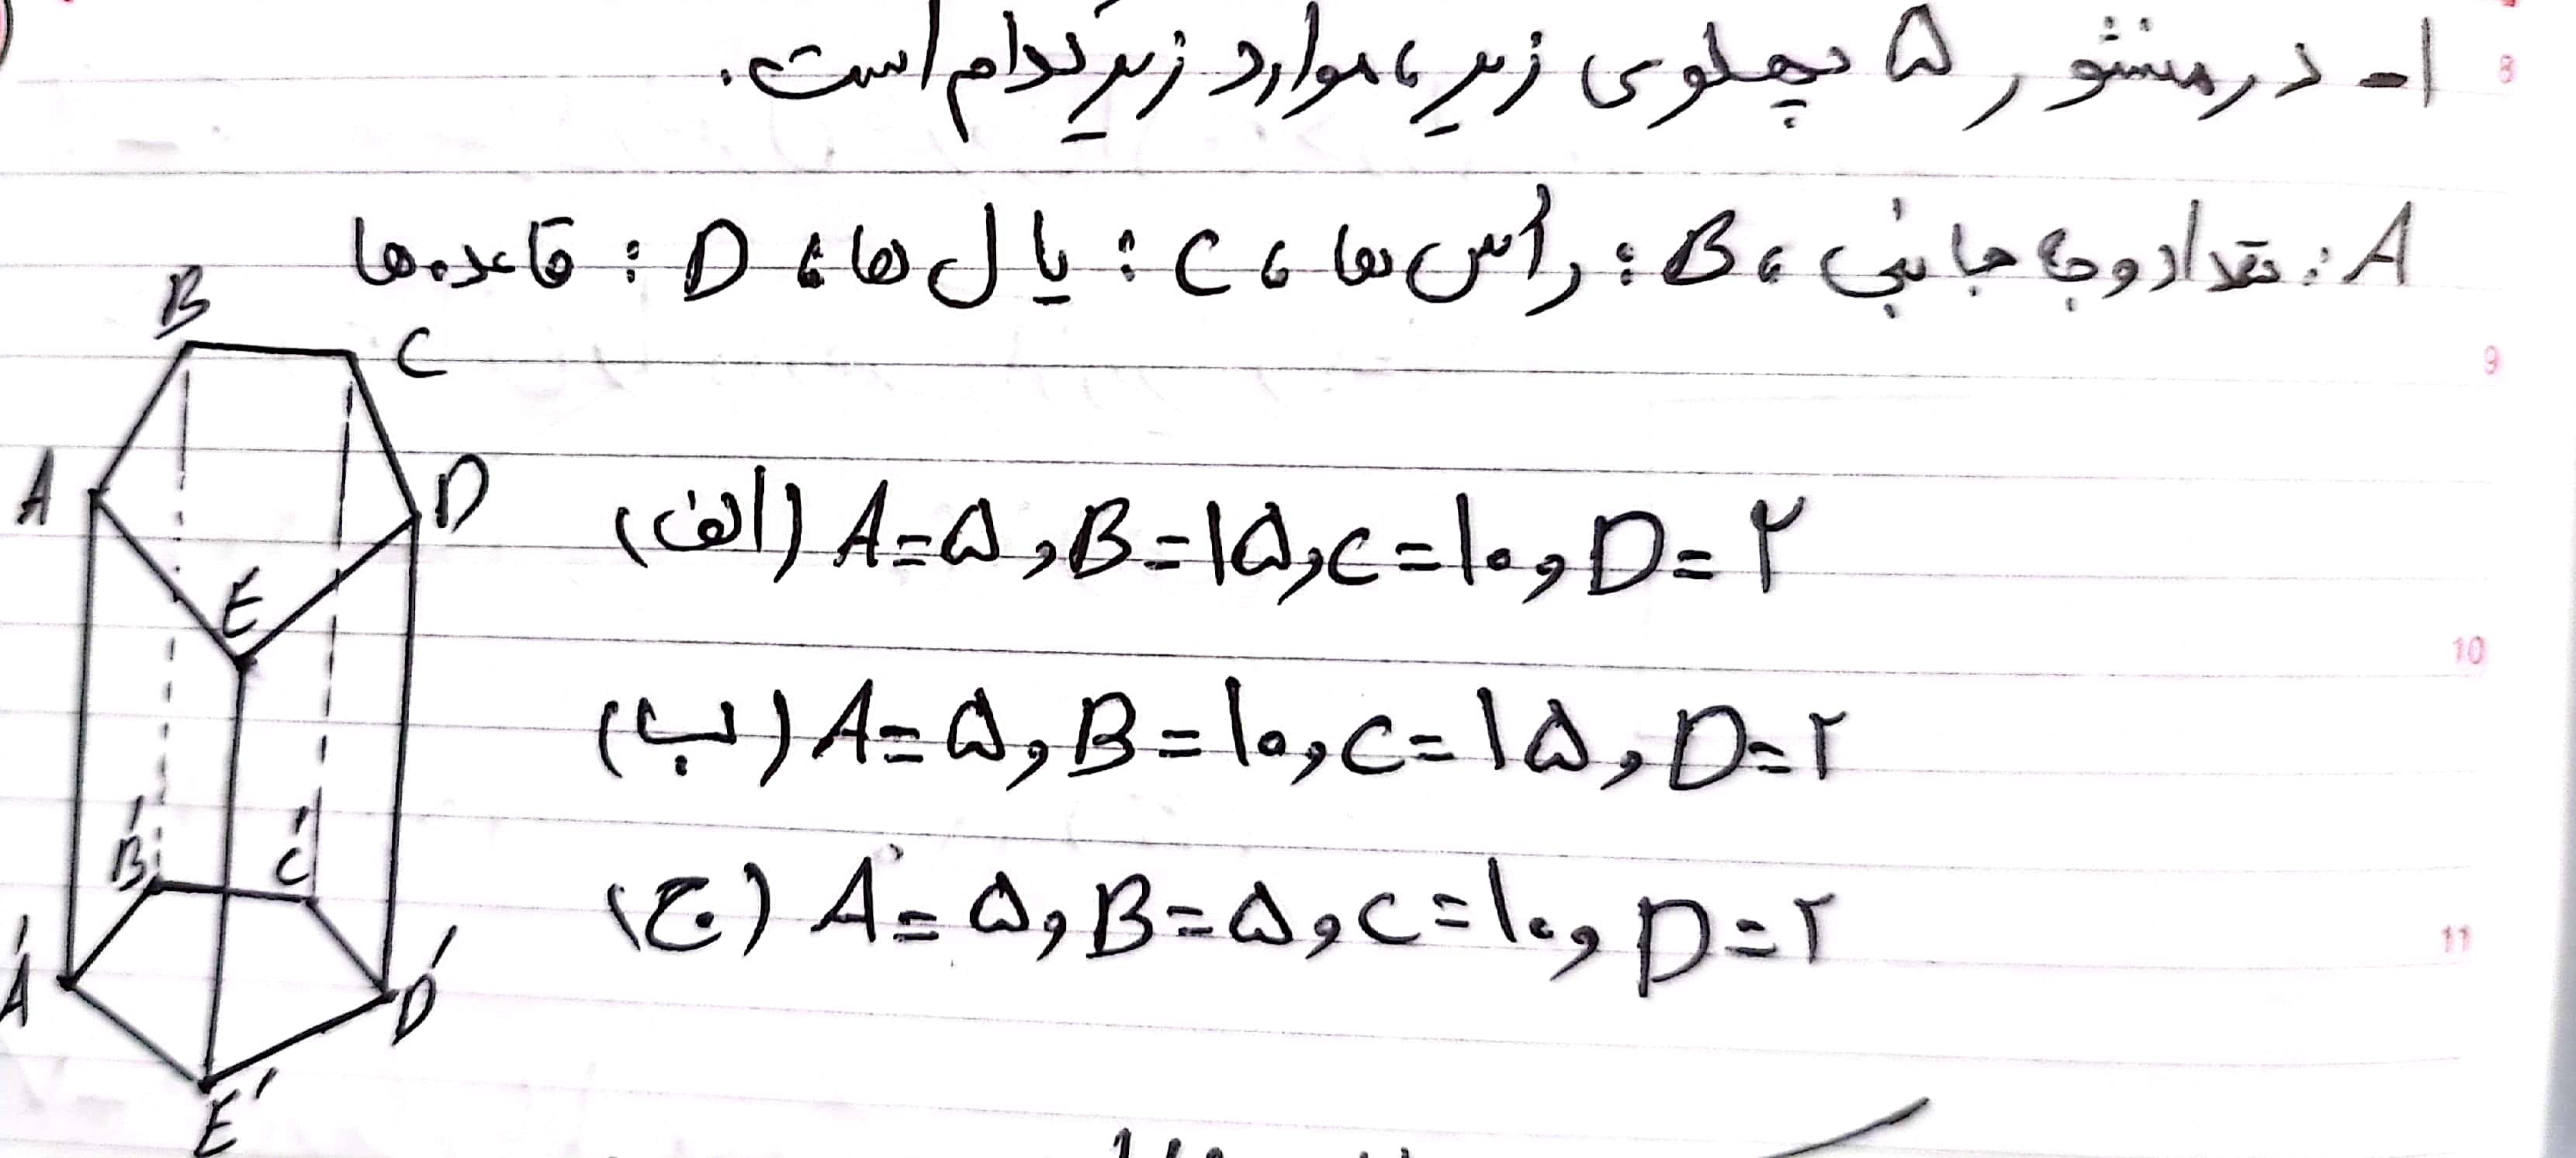 ۱- در منشور ۵ پهلوی زیر، موارد زیر کدام است.
A: تعداد وجه جانبی، B: رأس ها، C: یال ها، D: قاعده ها
B
C
A
D
E
الف) A=۵ , B=۱۵ , C=۱۰ , D=۲
ب) A=۵ , B=۱۰ , C=۱۵ , D=۲
ج) A=۵ , B=۵ , C=۱۰ , D=۲
B'
C'
A'
D'
E'
8
9
10
11